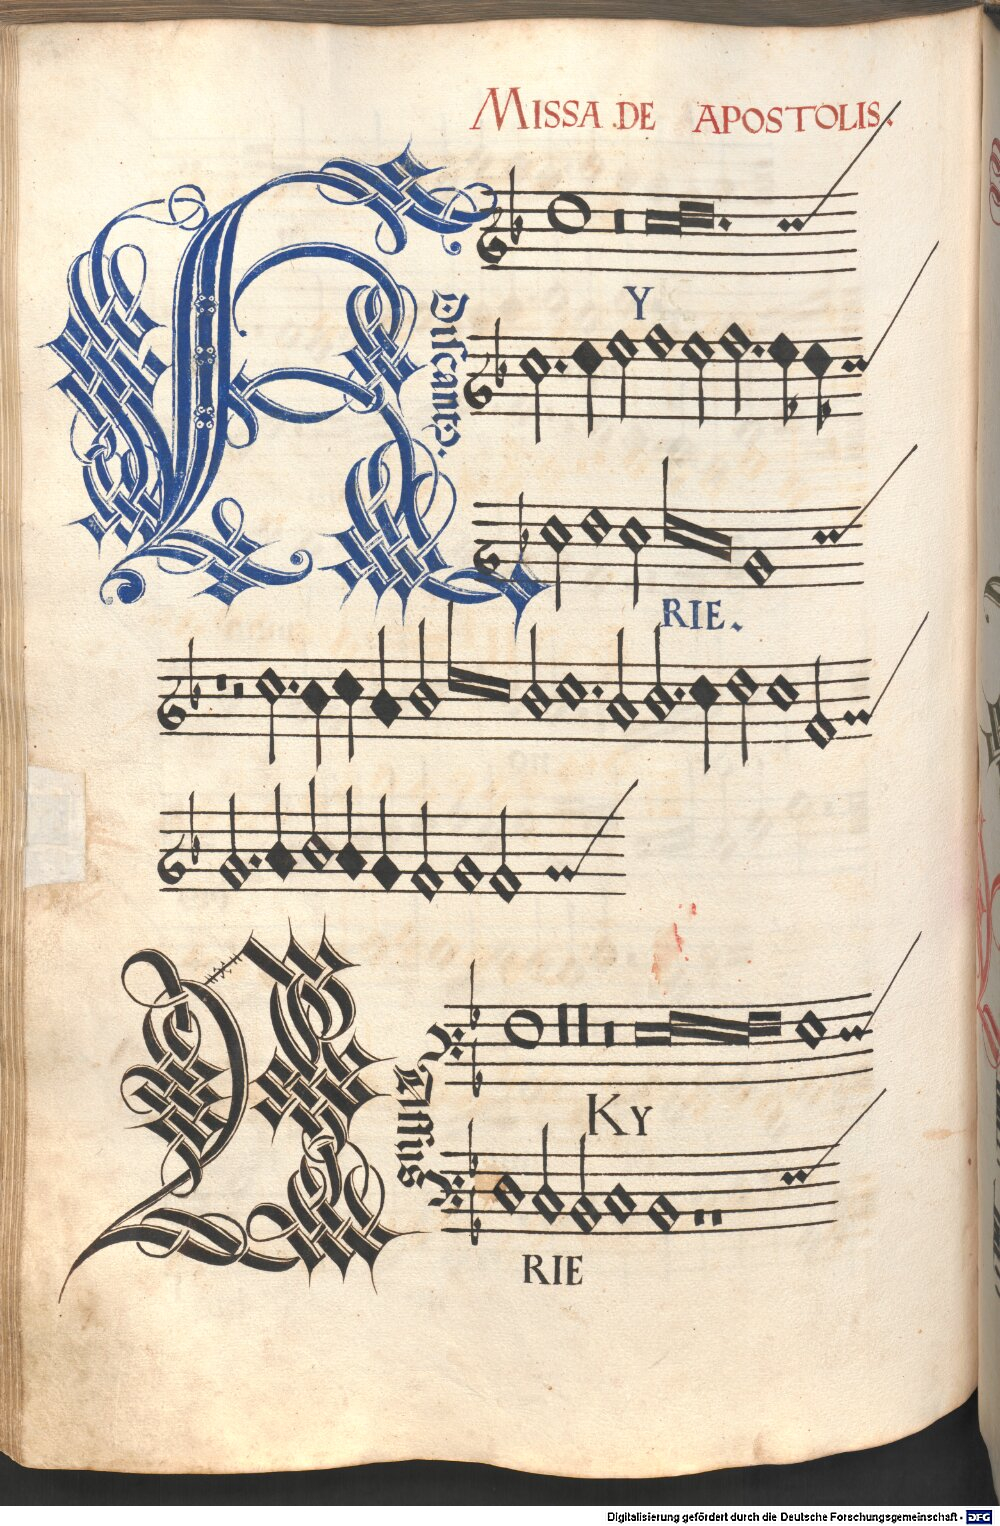 MISSA DE APOSTOLIS.
K
Discantus.
Y
RIE.
Bassus
KY
RIE
Digitalisierung gefördert durch die Deutsche Forschungsgemeinschaft - DFG